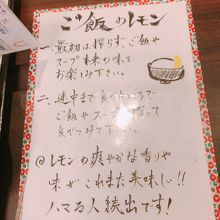 ご飯のレモン
一、最初は搾らず、ご飯や
スープ本来の味を
お楽しみ下さい。
二、途中まで食べすすんで
ご飯やスープに搾って
食べてみて下さい。
@レモンの爽やかな香りや
味がこれまた美味しい!!
ハマる人続出です!